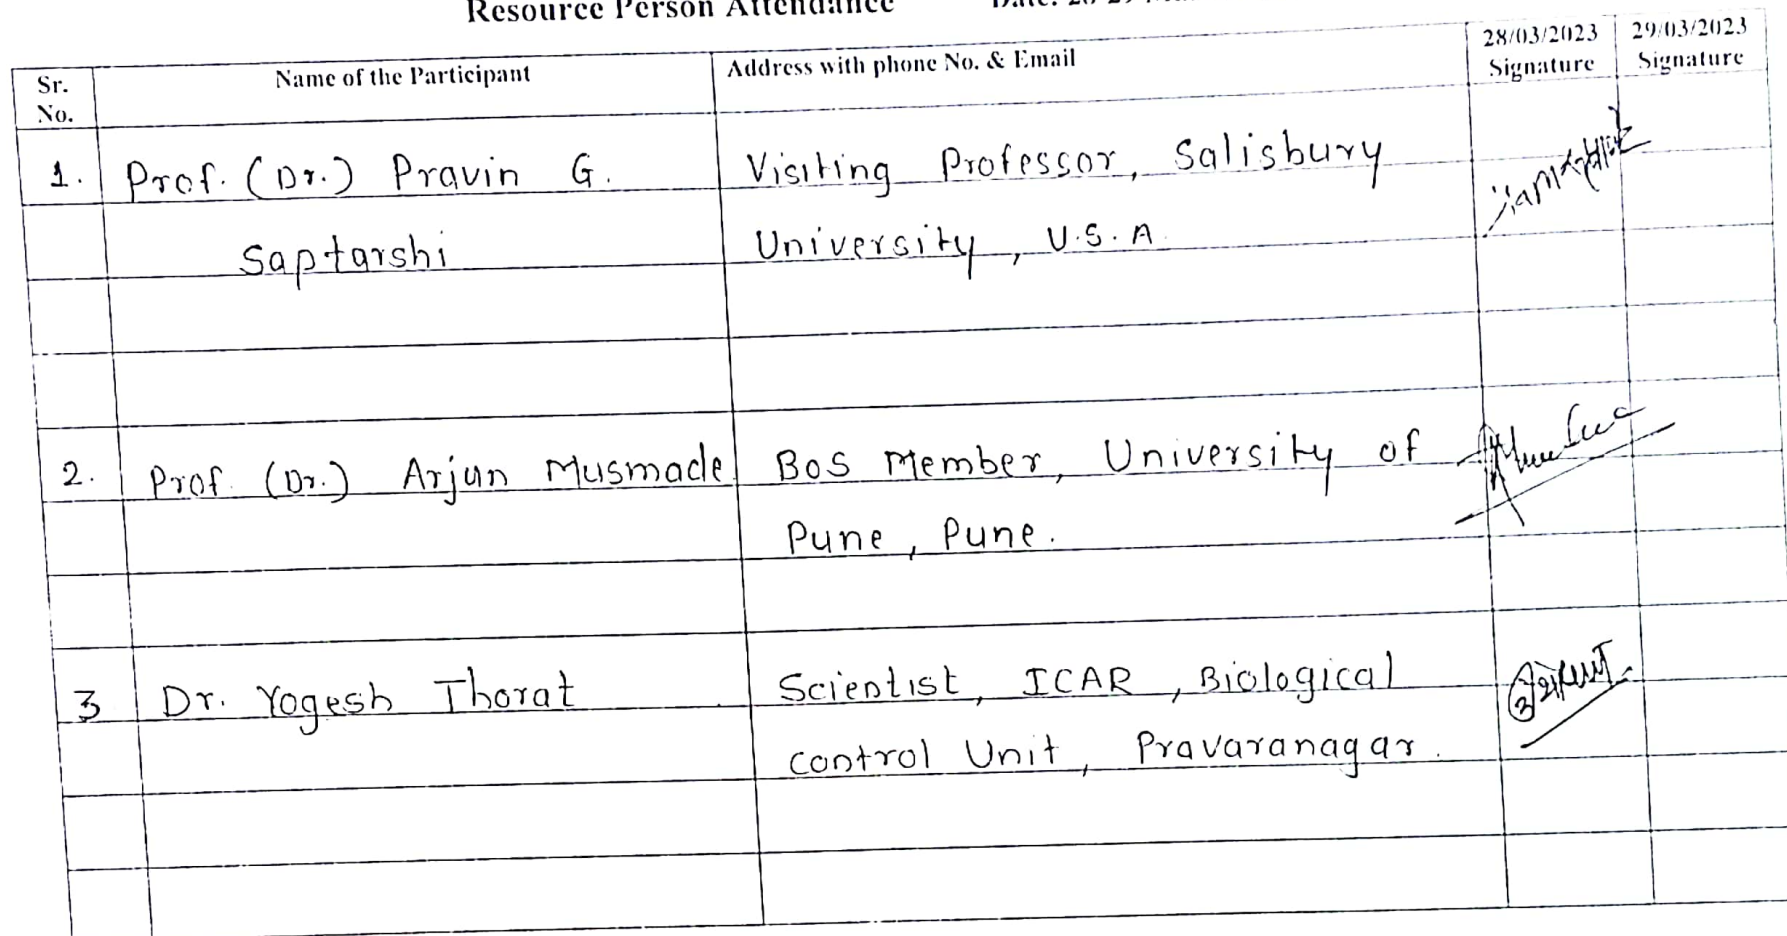 Resource Person Attendance
Sr. No. Name of the Participant Address with phone No. & Email 28/03/2023 Signature 29/03/2023 Signature
1. Prof. (Dr.) Pravin G. Visiting Professor, Salisbury
Saptarshi University, U.S.A.
2. Prof. (Dr.) Arjun Musmade BOS Member, University of
Pune, Pune.
3 Dr. Yogesh Thorat Scientist, ICAR, Biological
control Unit, Pravaranagar.